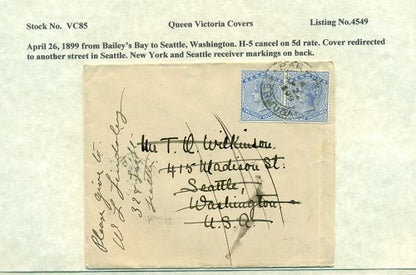 Stock No. VC85
Queen Victoria Covers
Listing No.4549
April 26, 1899 from Bailey's Bay to Seattle, Washington. H-5 cancel on 5d rate. Cover redirected
to another street in Seattle. New York and Seattle receiver markings on back.
Please give to
W L Lindsley
Seattle
Mr T Q Wilkinson,
415 Madison St.
Seattle,
Washington
U.S.A.